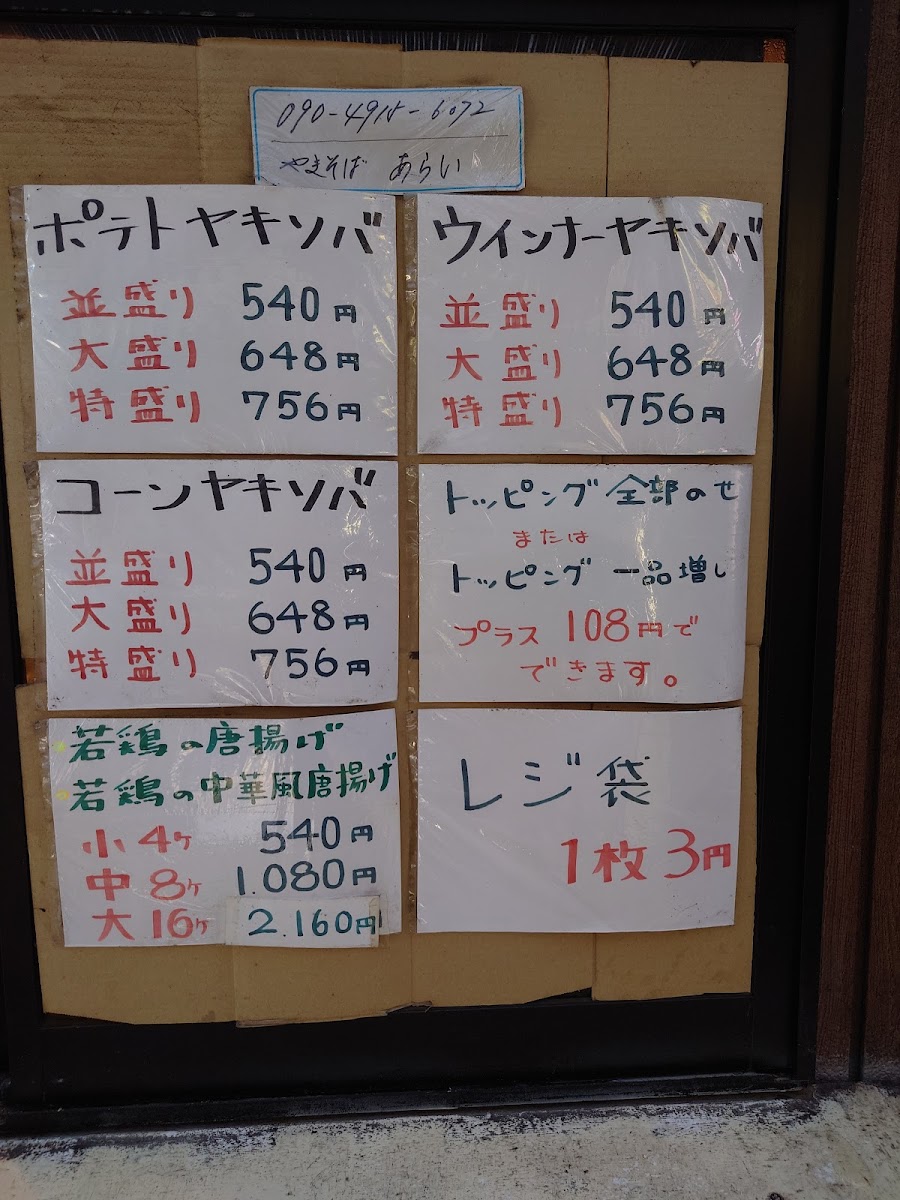 090-4915-6072
やきそば あらい
ポテトヤキソバ
並盛り 540円
大盛り 648円
特盛り 756円
ウインナーヤキソバ
並盛り 540円
大盛り 648円
特盛り 756円
コーンヤキソバ
並盛り 540円
大盛り 648円
特盛り 756円
トッピング 全部のせ
または
トッピング 一品増し
プラス 108円で
できます。
若鶏の唐揚げ
若鶏の中華風唐揚げ
小 4ヶ 540円
中 8ヶ 1.080円
大 16ヶ 2.160円
レジ袋
1枚 3円